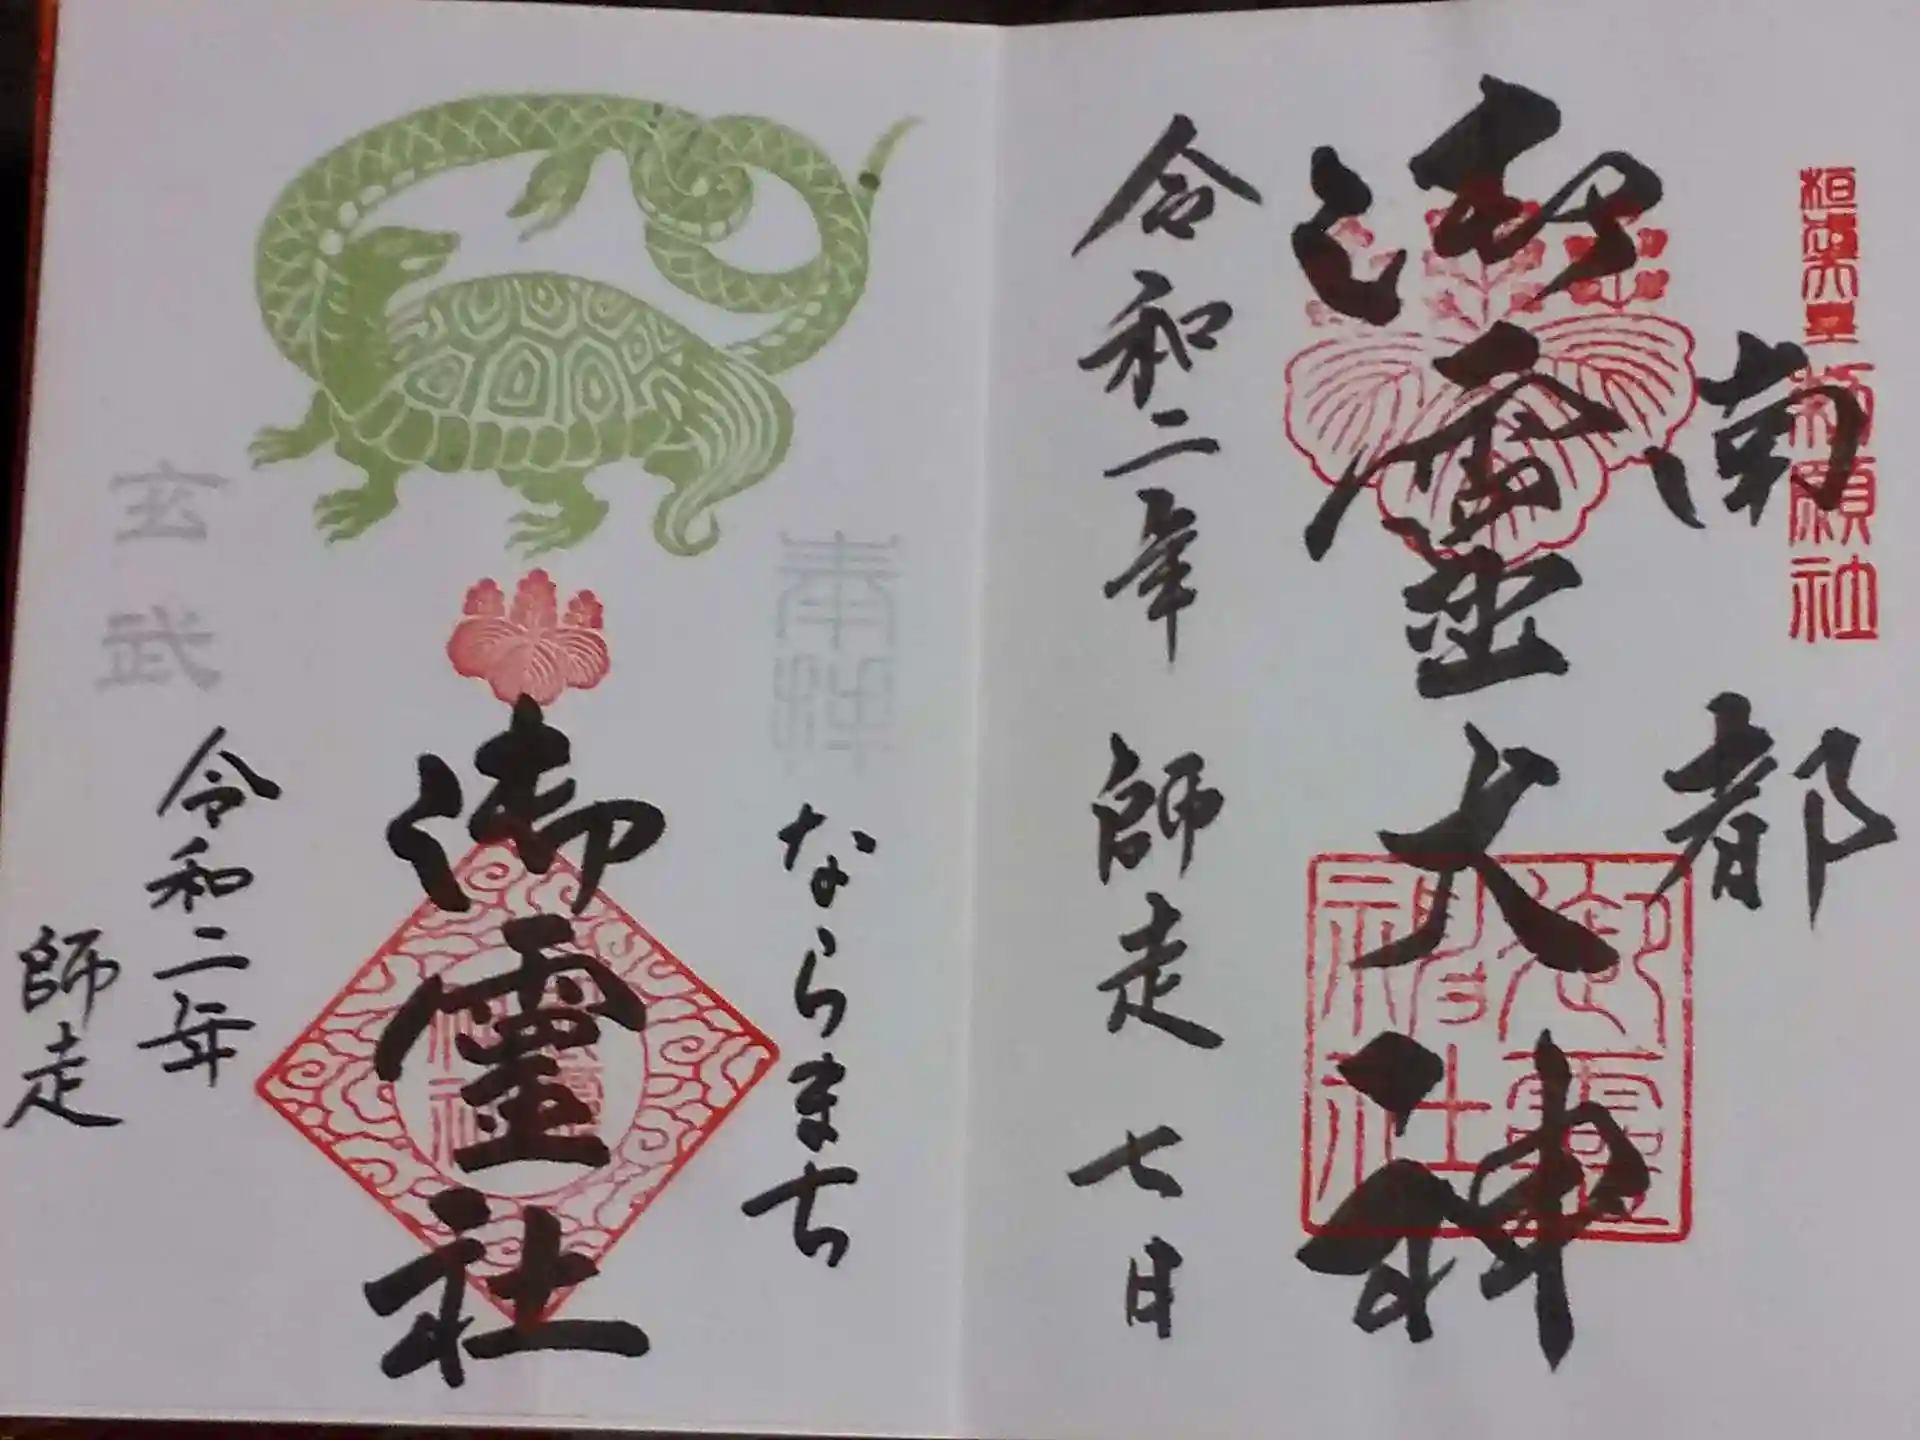 桓武天皇祈願社
南都
御霊大神
御霊神社
令和二年 師走 七日
奉拝
ならまち
御霊社
令和二年
師走
玄武